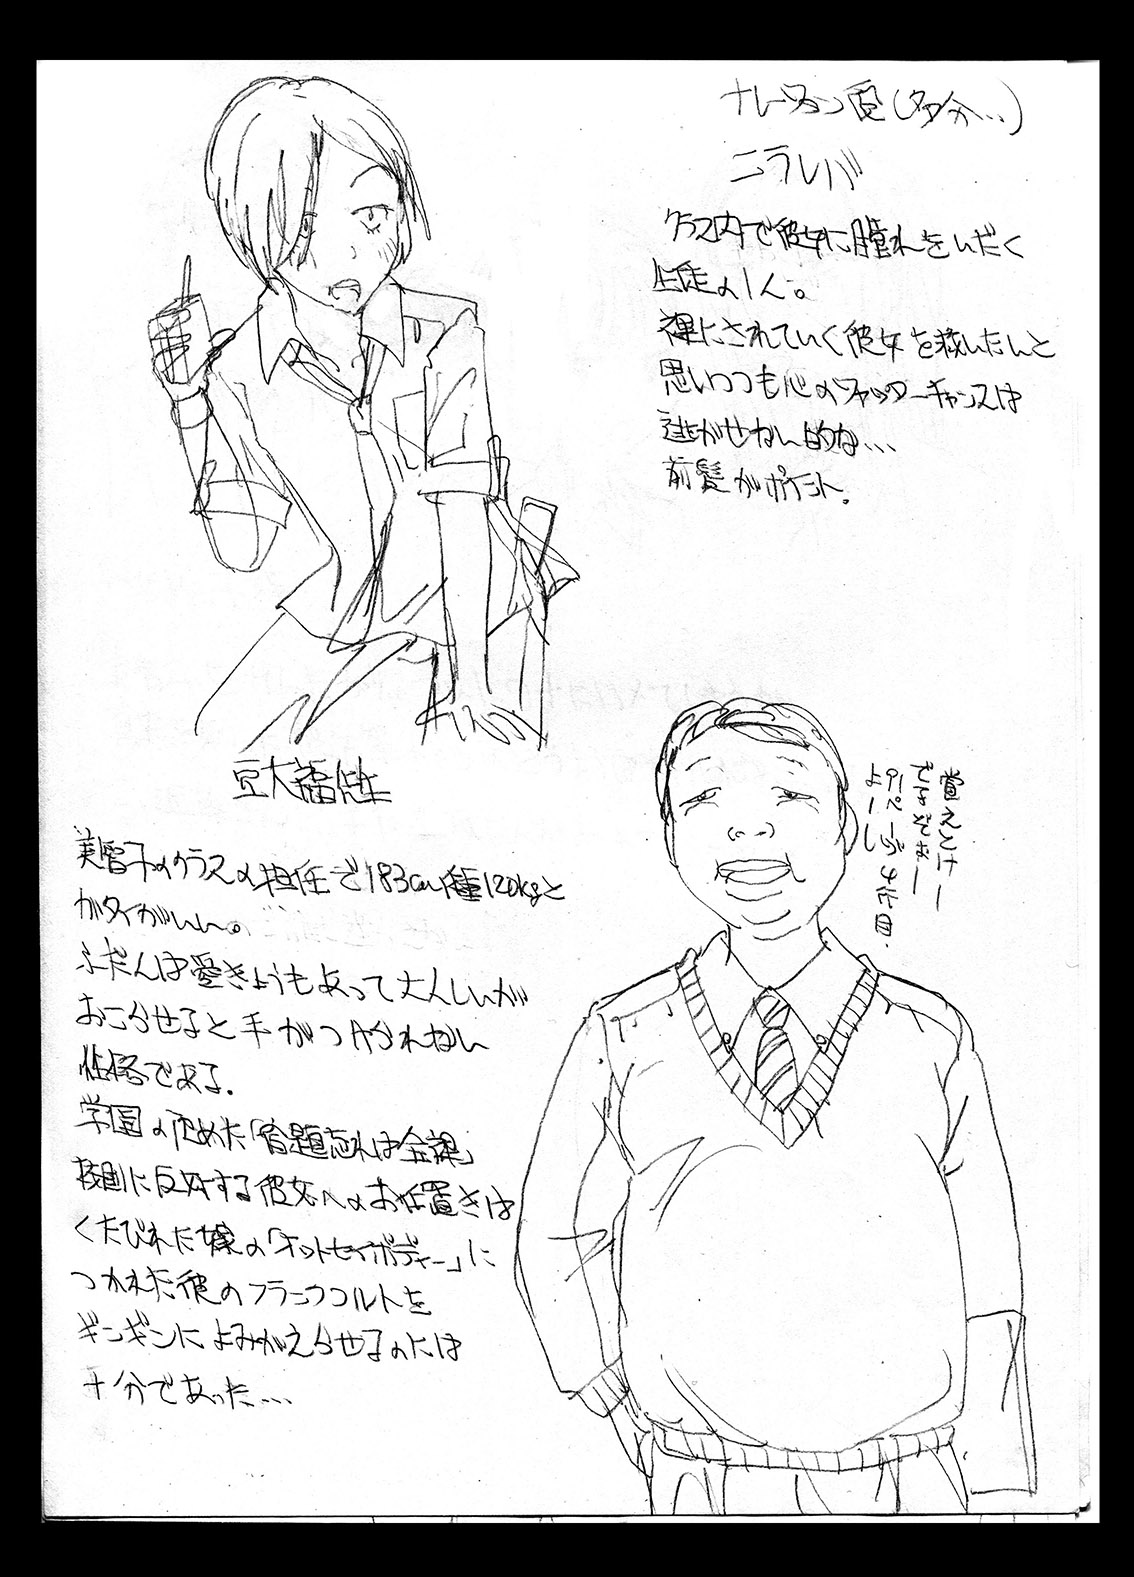 ナレーション役(多分...)
ニラレバ
クラス内で彼女に憧れをいだく
生徒の1人。
裸にされていく彼女を救いたいと
思いつつも心のシャッターチャンスは
逃がせない的な...
前髪がポイント。
豆大福先生
のクラスの担任で183cm 120kgと
ガタイがいい。
ふだんは愛きょうもあって大人しいが
おこらせると手がつけられない
性格である。
学園の定めた「宿題忘れは全裸」
校則に反対する彼女へのお仕置きは
くたびれた嫁の「オットセイボディー」に
つかれた彼のフランクフルトを
ギンギンによみがえらせるのには
十分であった...
覚えとけー
ですぞおー
91ページ 4行目.
よーし